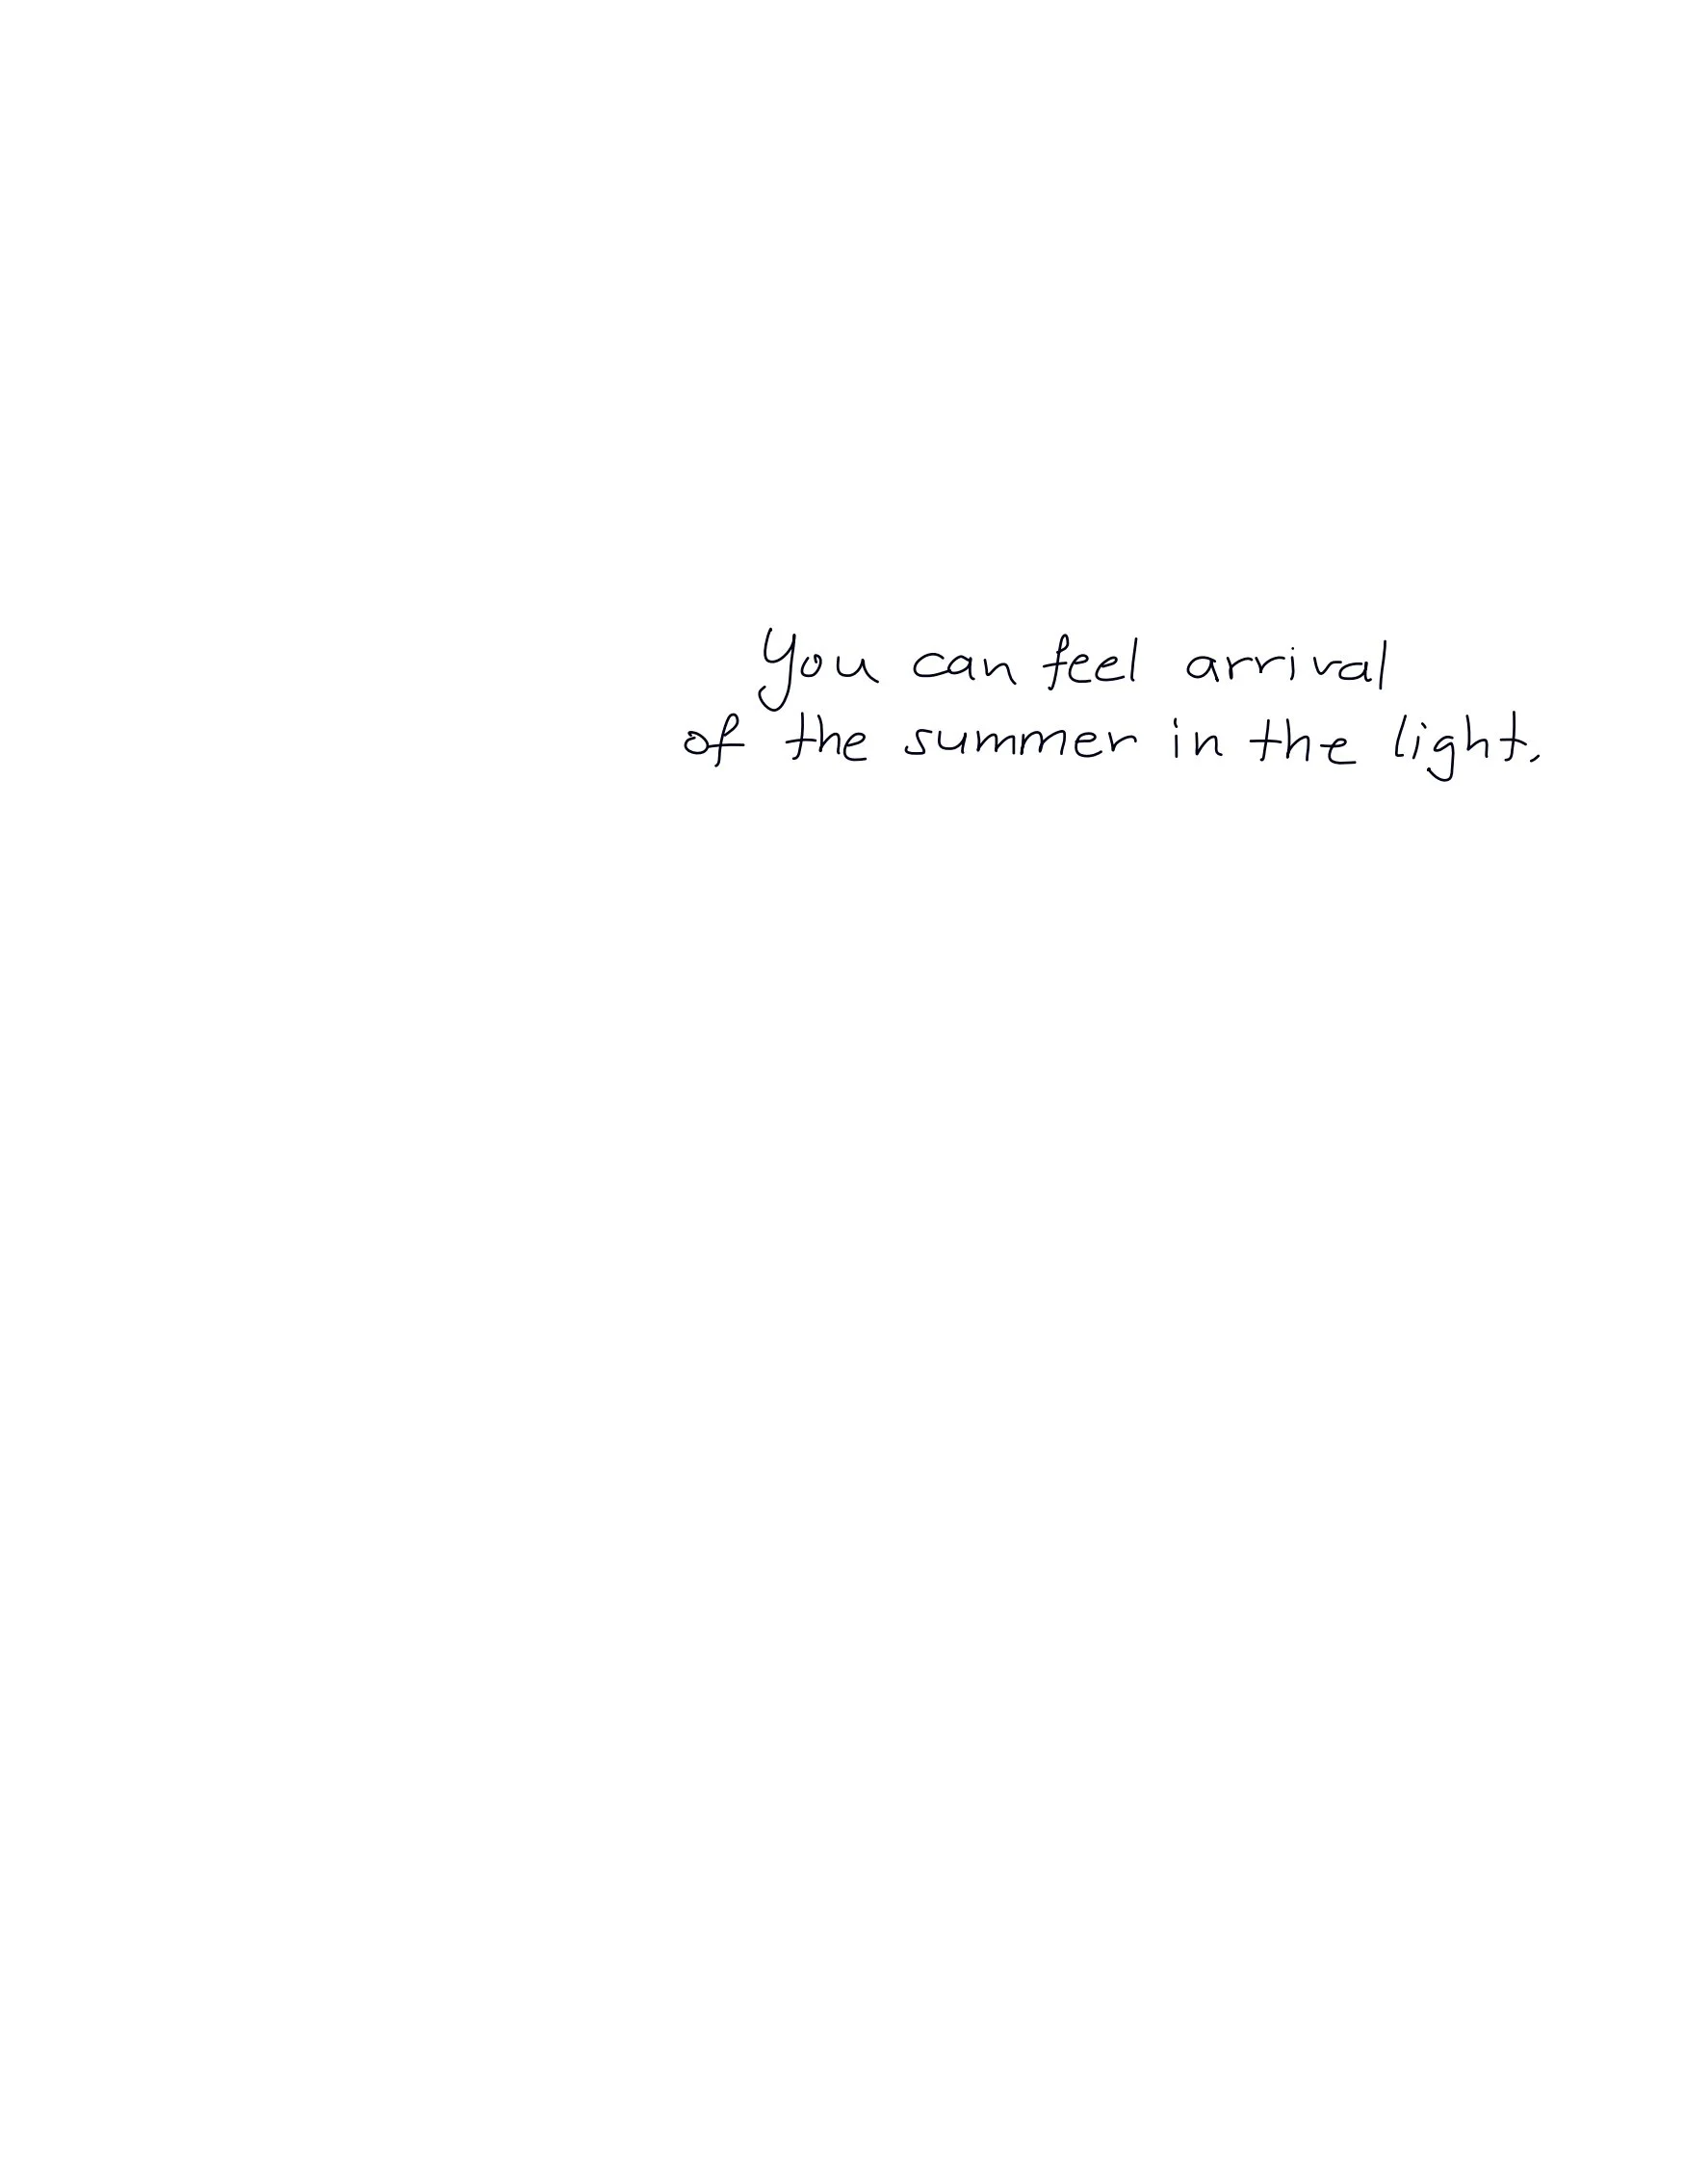 You can feel arrival
of the summer in the light.